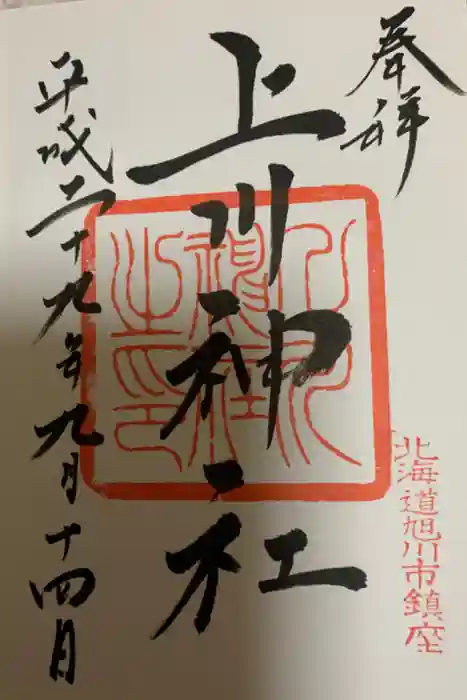 奉拝
上川神社
北海道旭川市鎮座
平成二十九年九月十四日